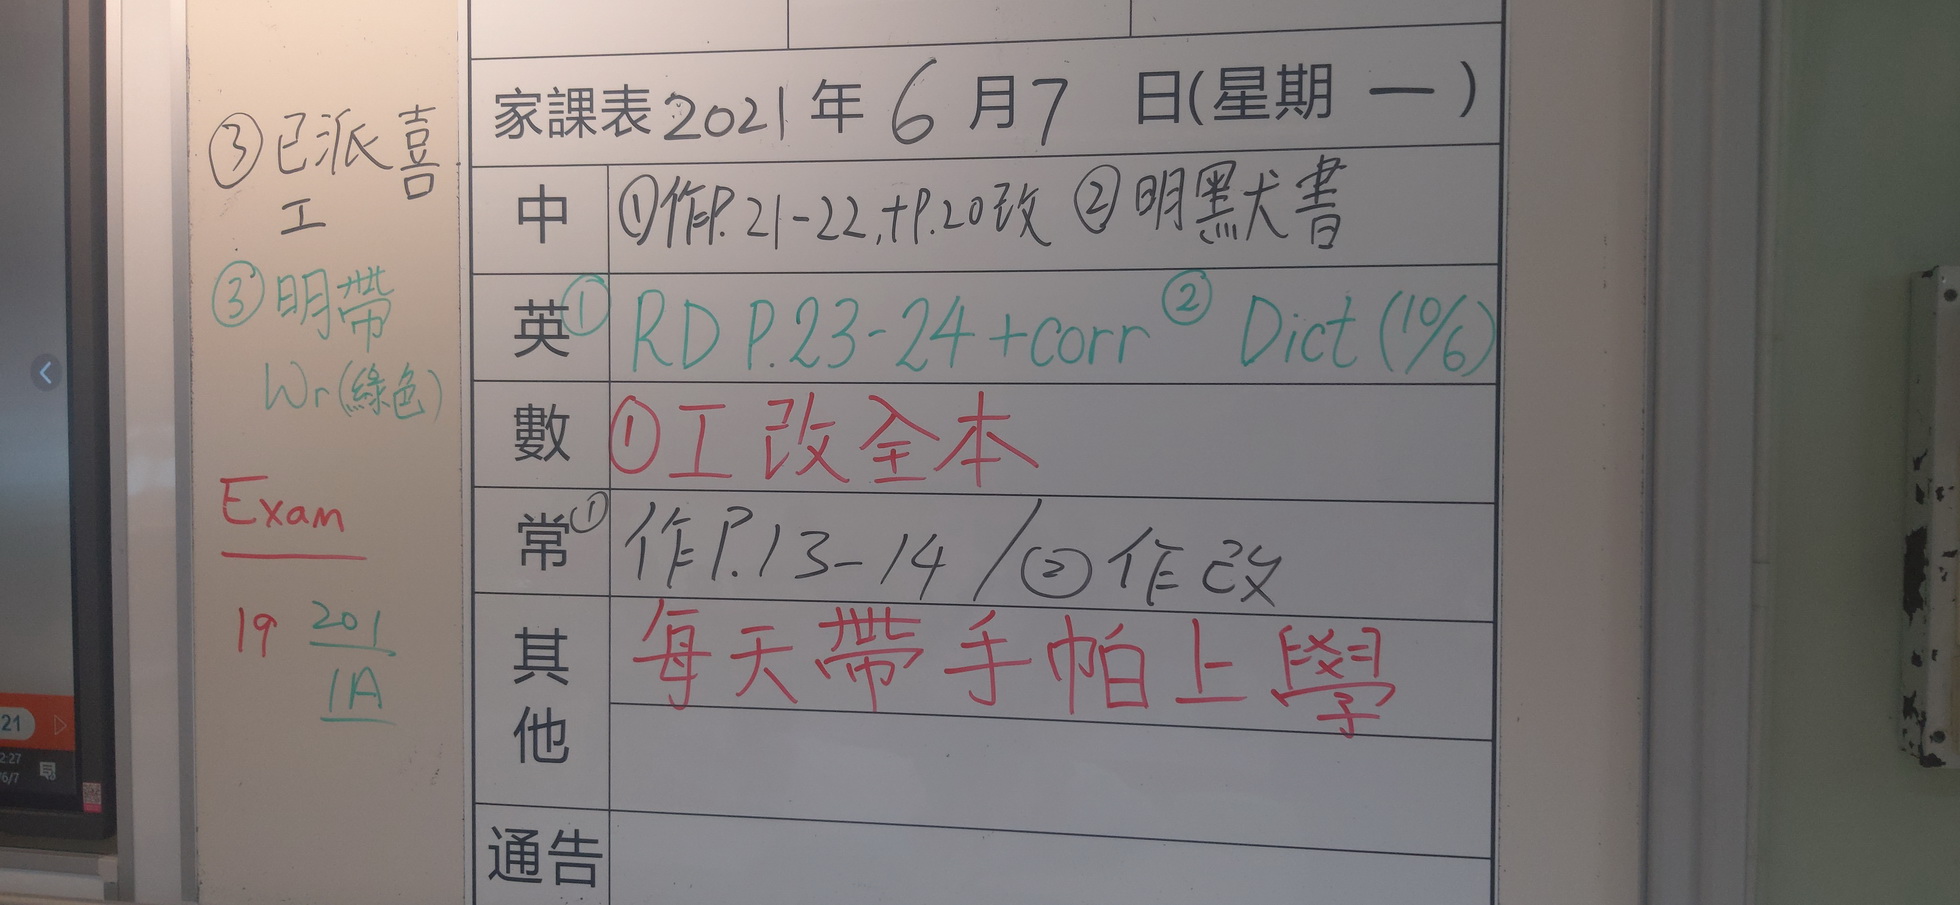 ③已派喜
工
③明帶
Wr(綠色)
Exam
19 201
1A
家課表2021年6月7日(星期一)
中 ①作P.21-22,+P.20改 ②明默書
英 ① RD P.23-24+corr ② Dict (10/6)
數 ①工改全本
常 ① 作P.13-14/②作改
其他 每天帶手帕上學
通告
21
2:27
/6/7